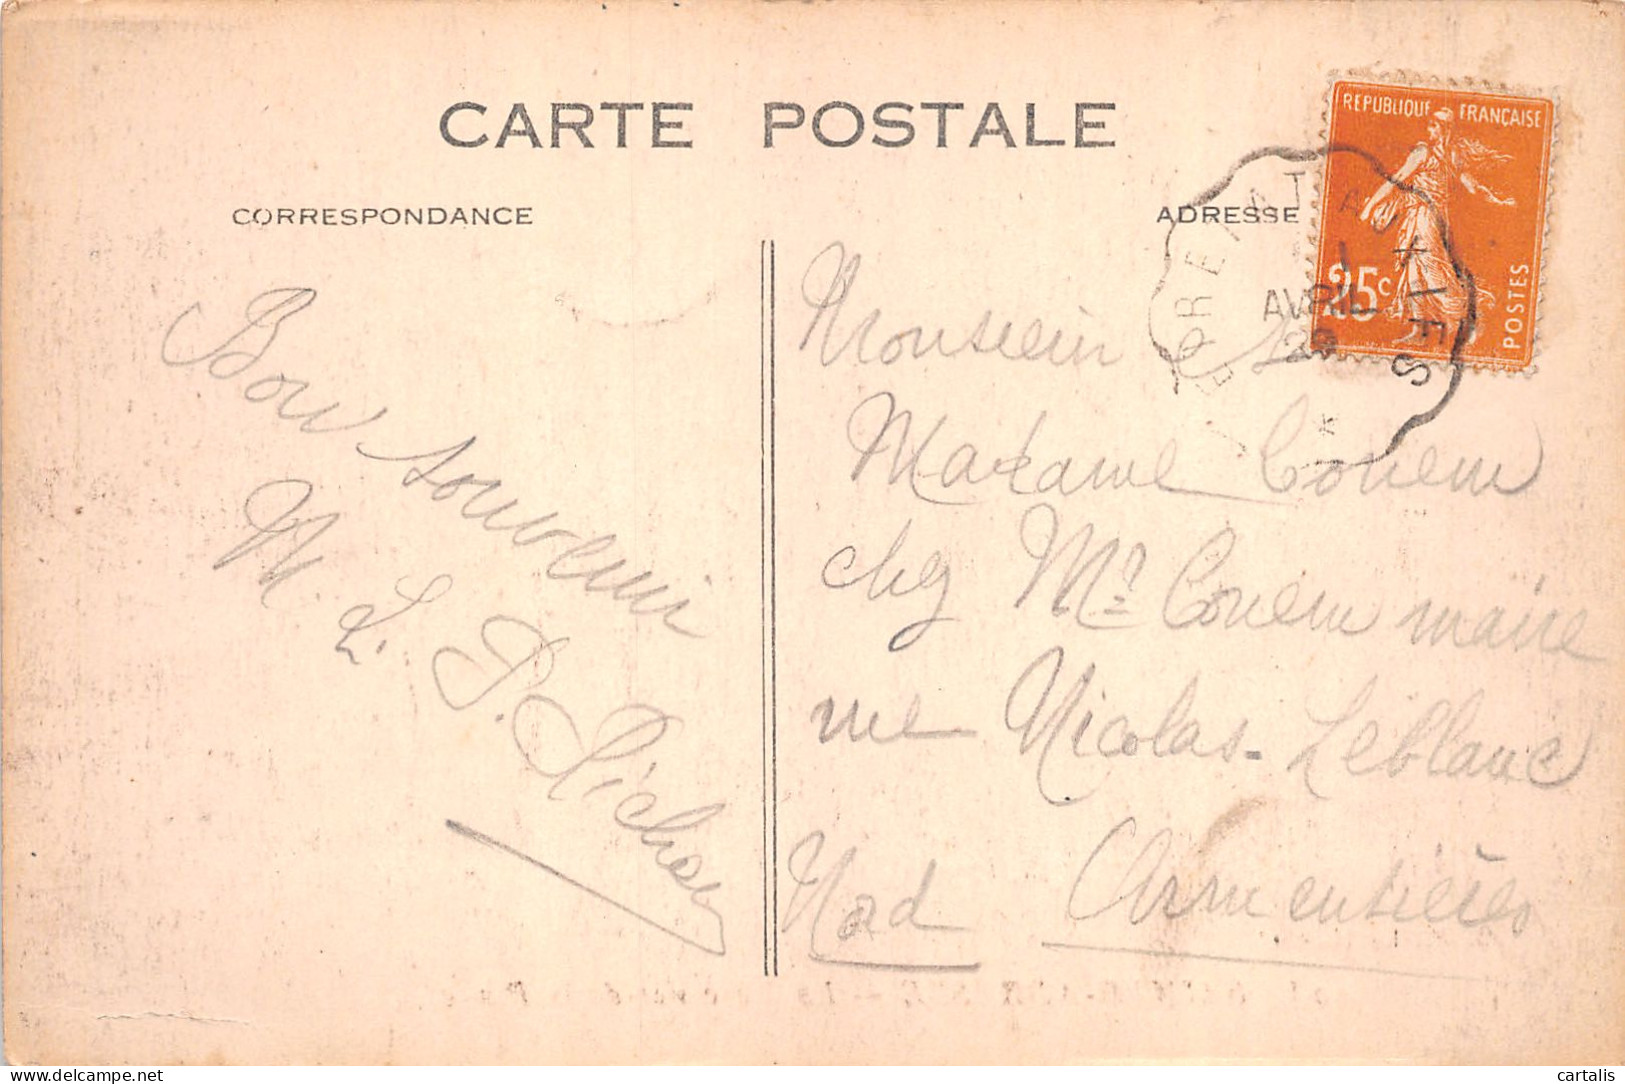 CARTE POSTALE
CORRESPONDANCE
ADRESSE
REPUBLIQUE FRANÇAISE
25c
POSTES
AVRIL
Bon souvenir
M
L. P.
Monsieur
Madame Couem
chez Mr Couem maire
rue Nicolas-Leblanc
Nord Armentières
cartalis
delcampe.net